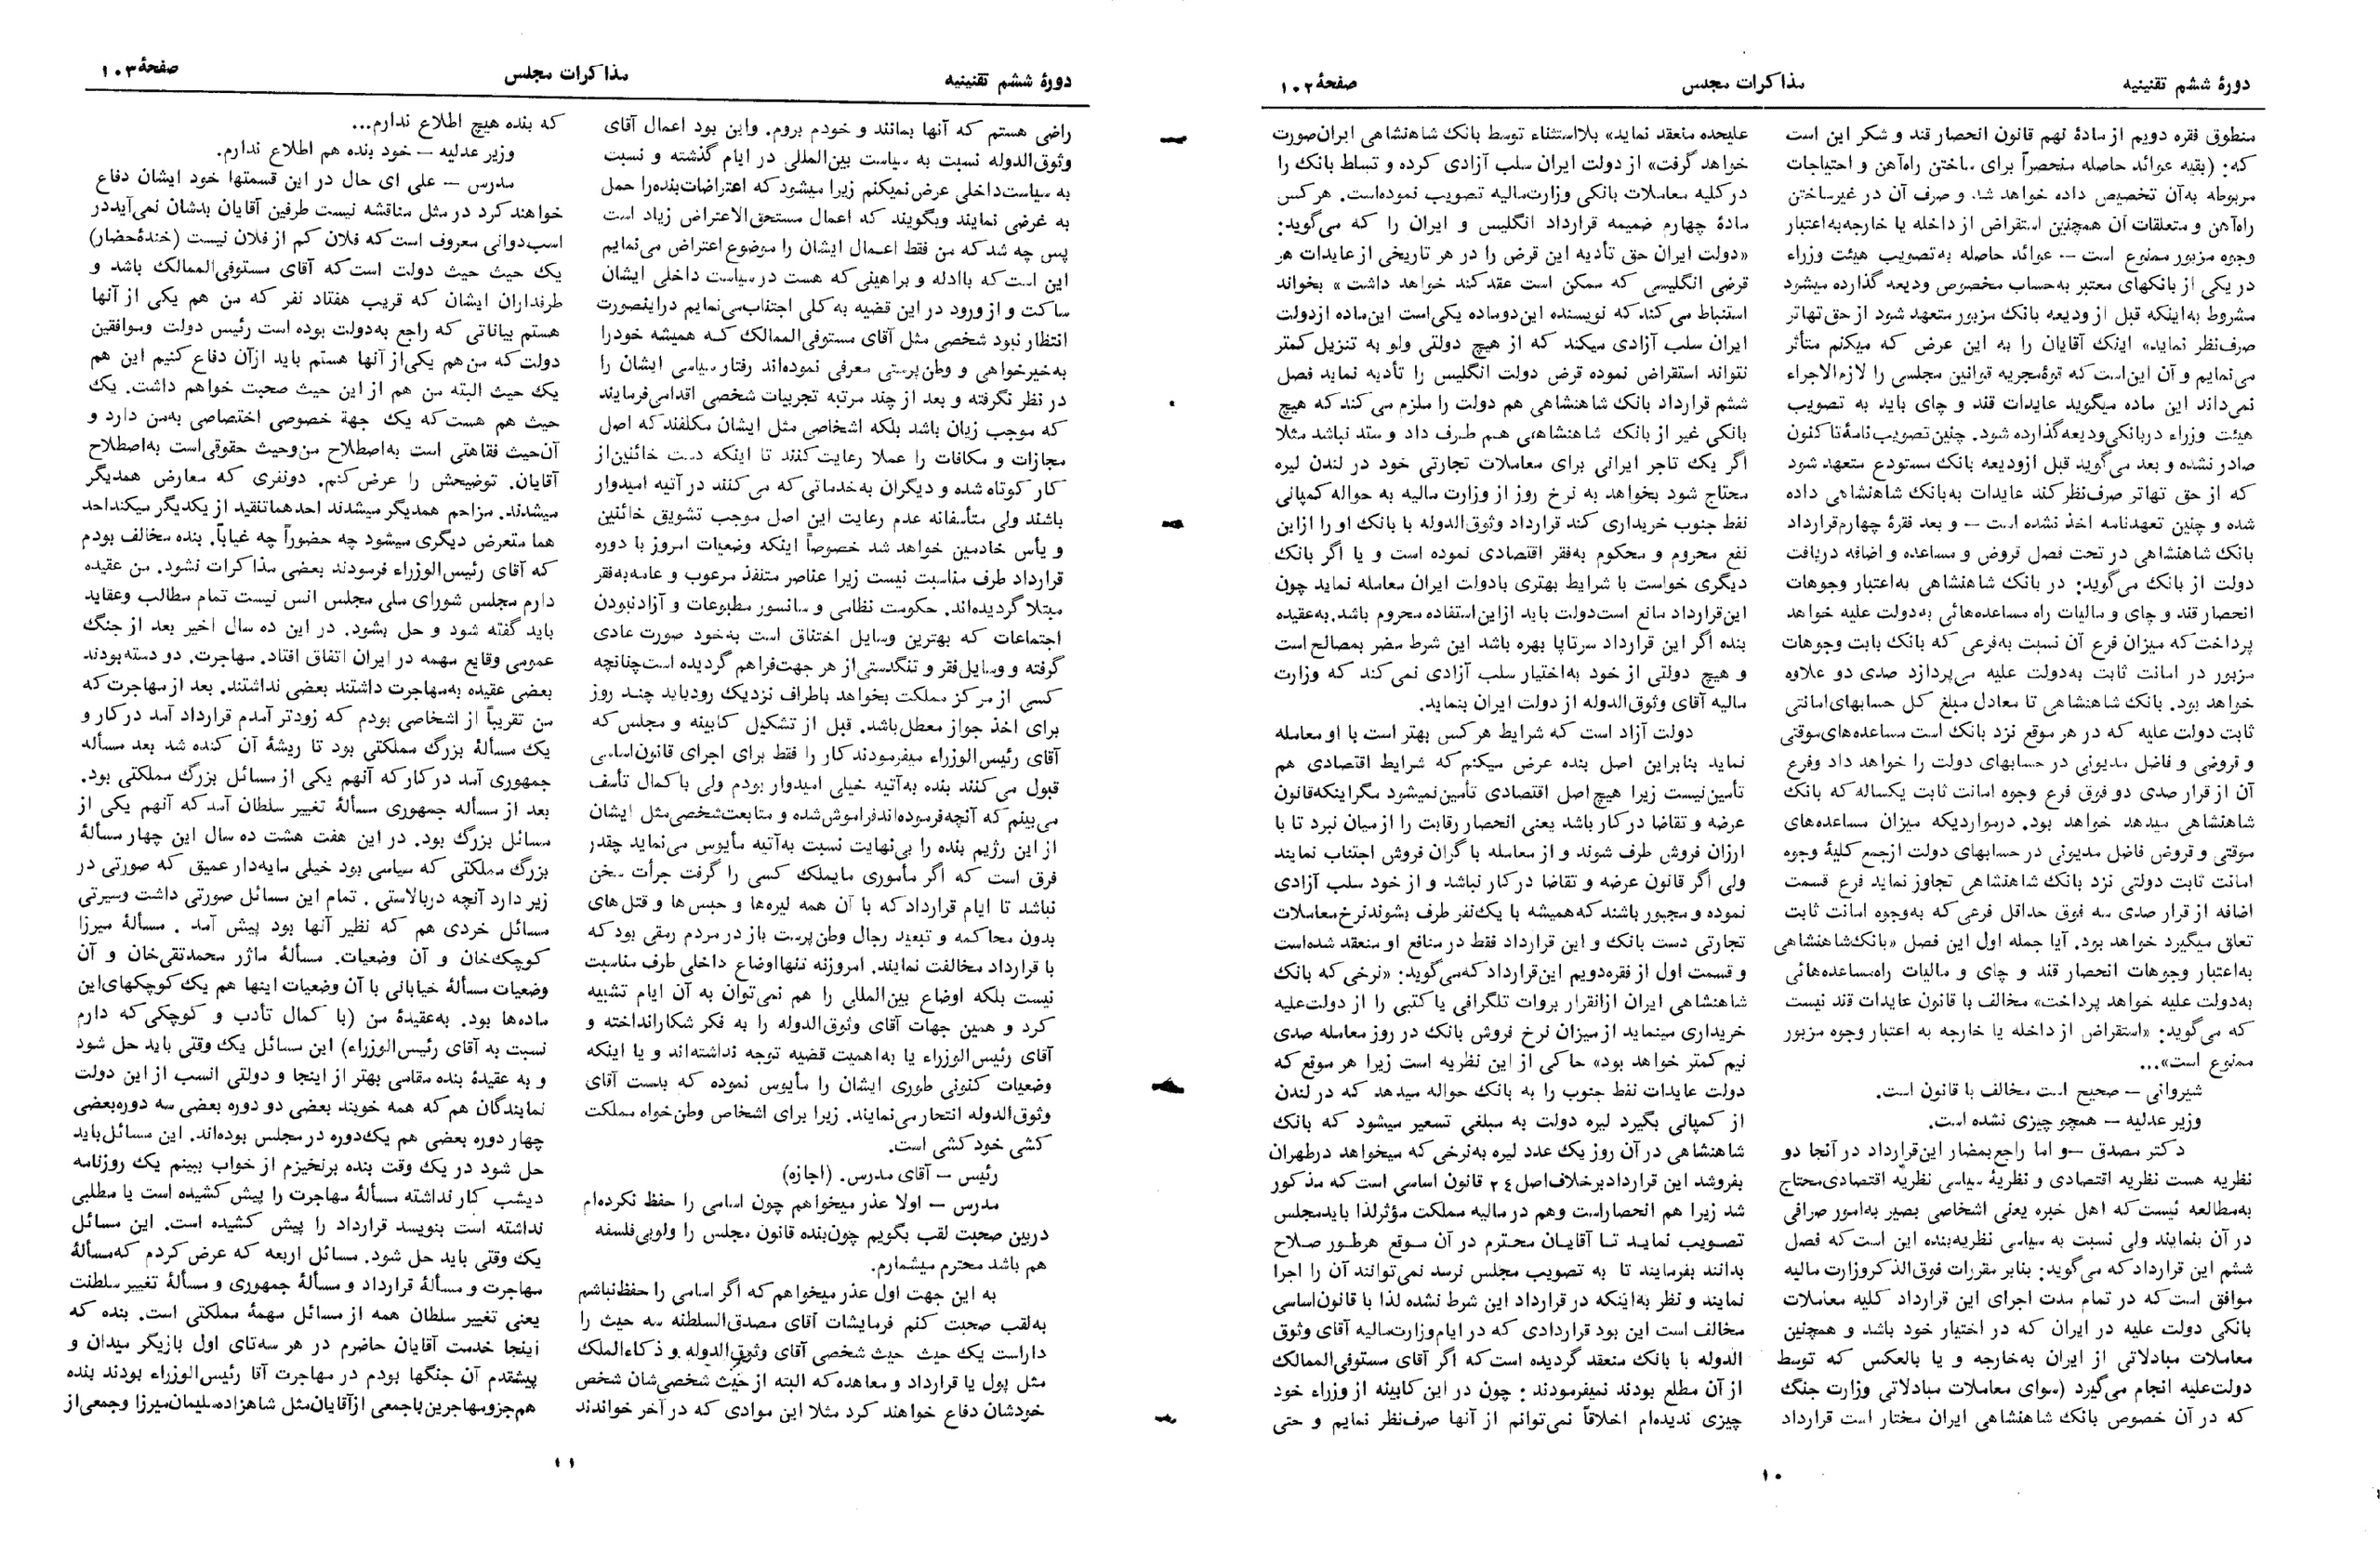 دورهٔ ششم تقنینیه
مذاکرات مجلس
صفحهٔ ۱۰۲
منطوق فقره دویم از مادهٔ نهم قانون انحصار قند و شکر این است
که: (بقیه عوائد حاصله منحصراً برای ساختن راه‌آهن و احتیاجات
مربوطه به‌آن تخصیص داده خواهد شد و صرف آن در غیرساختن
راه‌آهن و متعلقات آن همچنین استقراض از داخله یا خارجه‌به‌اعتبار
وجوه مزبور ممنوع است -- عوائد حاصله به‌تصویب هیئت وزراء
در یکی از بانکهای معتبر به‌حساب مخصوص ودیعه گذارده میشود
مشروط به‌اینکه قبل از ودیعه بانک مزبور متعهد شود از حق‌تهاتر
صرف‌نظر نماید» اینک آقایان را به این عرض که میکنم متأثر
می‌نمایم و آن این‌است که قوهٔ‌مجریه قوانین مجلسی را لازم‌الاجراء
نمی‌داند این ماده میگوید عایدات قند و چای باید به تصویب
هیئت وزراء دربانکی‌ودیعه‌گذارده شود. چنین‌تصویب‌نامهٔ‌تاکنون
صادر نشده و بعد می‌گوید قبل ازودیعه بانک مستودع متعهد شود
که از حق تهاتر صرف‌نظر کند عایدات به‌بانک شاهنشاهی داده
شده و چنین تعهدنامه اخذ نشده است – و بعد فقرهٔ چهارم‌قرارداد
بانک شاهنشاهی در تحت فصل قروض و مساعده و اضافه دریافت
دولت از بانک می‌گوید: در بانک شاهنشاهی به‌اعتبار وجوهات
انحصار قند و چای و مالیات راه مساعده‌هائی به‌دولت علیه خواهد
پرداخت‌که میزان فرع آن نسبت به‌فرعی که بانک بابت وجوهات
مزبور در امانت ثابت به‌دولت علیه می‌پردازد صدی دو علاوه
خواهد بود. بانک شاهنشاهی تا معادل مبلغ کل حسابهای‌امانتی
ثابت دولت علیه که در هر موقع نزد بانک است مساعده‌های‌موقتی
و قروضی و فاضل مدیونی در حسابهای دولت را خواهد داد وفرع
آن از قرار صدی دو فوق فرع وجوه امانت ثابت یکساله که بانک
شاهنشاهی میدهد خواهد بود. درمواردیکه میزان مساعده‌های
موقتی و قروض فاضل مدیونی در حسابهای دولت ازجمع کلیهٔ وجوه
امانت ثابت دولتی نزد بانک شاهنشاهی تجاوز نماید فرع قسمت
اضافه از قرار صدی سه فوق حداقل فرعی که به‌وجوه امانت ثابت
تعلق میگیرد خواهد بود. آیا جمله اول این فصل «بانک‌شاهنشاهی
به‌اعتبار وجوهات انحصار قند و چای و مالیات راه‌مساعده‌هائی
به‌دولت علیه خواهد پرداخت» مخالف با قانون عایدات قند نیست
که می‌گوید: «استقراض از داخله یا خارجه به اعتبار وجوه مزبور
ممنوع است»...
شیروانی – صحیح است مخالف با قانون است.
وزیر عدلیه – همچو چیزی نشده است.
دکتر مصدق – و اما راجع‌بمضار این‌قرارداد در آنجا دو
نظریه هست نظریه اقتصادی و نظریهٔ سیاسی نظریهٔ اقتصادی‌محتاج
به‌مطالعه نیست‌که اهل خبره یعنی اشخاصی بصیر به‌امور صرافی
در آن بنمایند ولی نسبت به سیاسی نظریه‌بنده این است‌که فصل
ششم این قراردادکه می‌گوید: بنابر مقررات فوق‌الذکروزارت مالیه
موافق است‌که در تمام مدت اجرای این قرارداد کلیه معاملات
بانکی دولت علیه در ایران که در اختیار خود باشد و همچنین
معاملات مبادلاتی از ایران به‌خارجه و یا بالعکس که توسط
دولت‌علیه انجام می‌گیرد (سوای معاملات مبادلاتی وزارت جنگ
که در آن خصوص بانک شاهنشاهی ایران مختار است قرارداد
علیحده منعقد نماید» بلااستثناء توسط بانک شاهنشاهی ایران‌صورت
خواهد گرفت» از دولت ایران سلب آزادی کرده و تسلط بانک را
درکلیه معاملات بانکی وزارت‌مالیه تصویب نموده‌است. هرکس
مادهٔ چهارم ضمیمه قرارداد انگلیس و ایران را که می‌گوید:
«دولت ایران حق تأدیه این قرض را در هر تاریخی از عایدات هر
قرضی انگلیسی که ممکن است عقد کند خواهد داشت» بخواند
استنباط می‌کند که نویسنده این‌دوماده یکی‌است این‌ماده ازدولت
ایران سلب آزادی میکند که از هیچ دولتی ولو به تنزیل کمتر
نتواند استقراض نموده قرض دولت انگلیس را تأدیه نماید فصل
ششم قرارداد بانک شاهنشاهی هم دولت را ملزم می‌کند که هیچ
بانکی غیر از بانک شاهنشاهی هم طرف داد و ستد نباشد مثلا
اگر یک تاجر ایرانی برای معاملات تجارتی خود در لندن لیره
محتاج شود بخواهد به نرخ روز از وزارت مالیه به حواله کمپانی
نفط جنوب خریداری کند قرارداد وثوق‌الدوله با بانک او را ازاین
نفع محروم و محکوم به‌فقر اقتصادی نموده است و یا اگر بانک
دیگری خواست با شرایط بهتری بادولت ایران معامله نماید چون
این‌قرارداد مانع است‌دولت باید ازاین‌استفاده محروم باشد. به‌عقیده
بنده اگر این قرارداد سرتاپا بهره باشد این شرط مضر بمصالح است
و هیچ دولتی از خود به‌اختیار سلب آزادی نمی‌کند که وزارت
مالیه آقای وثوق‌الدوله از دولت ایران بنماید.
دولت آزاد است که شرایط هرکس بهتر است با او معامله
نماید بنابراین اصل بنده عرض میکنم‌که شرایط اقتصادی هم
تأمین‌نیست زیرا هیچ‌اصل اقتصادی تأمین‌نمیشود مگراینکه‌قانون
عرضه و تقاضا درکار باشد یعنی انحصار رقابت را ازمیان نبرد تا با
ارزان فروش طرف شوند و از معامله باگران فروش اجتناب نمایند
ولی اگر قانون عرضه و تقاضا درکار نباشد و از خود سلب آزادی
نموده و مجبور باشند که‌همیشه با یک‌نفر طرف بشوندنرخ‌معاملات
تجارتی دست بانک و این قرارداد فقط در منافع او منعقد شده‌است
و قسمت اول از فقره‌دویم این‌قرارداد که‌می‌گوید: «نرخی که بانک
شاهنشاهی ایران ازانقرار بروات تلگرافی یاکتبی را از دولت‌علیه
خریداری مینماید از میزان نرخ فروش بانک در روز معامله صدی
نیم کمتر خواهد بود» حاکی از این نظریه است زیرا هر موقع که
دولت عایدات نفط جنوب را به بانک حواله میدهد که در لندن
از کمپانی بگیرد لیره دولت به مبلغی تسعیر میشود که بانک
شاهنشاهی در آن روز یک عدد لیره به‌نرخی که میخواهد درطهران
بفروشد این قراردادبرخلاف‌اصل ۲۴ قانون اساسی است که مذکور
شد زیرا هم انحصاراست وهم در مالیه مملکت مؤثرلذا بایدمجلس
تصویب نماید تا آقایان محترم در آن موقع هرطور صلاح
بدانند بفرمایند تا به تصویب مجلس نرسد نمی‌توانند آن را اجرا
نمایند و نظر به‌اینکه در قرارداد این شرط نشده لذا با قانون‌اساسی
مخالف است این بود قراردادی که در ایام‌وزارت‌مالیه آقای وثوق
الدوله با بانک منعقد گردیده است‌که اگر آقای مستوفی‌الممالک
از آن مطلع بودند نمیفرمودند: چون در این کابینه از وزراء خود
چیزی ندیده‌ام اخلاقاً نمی‌توانم از آنها صرف‌نظر نمایم و حتی
۱۰
دورهٔ ششم تقنینیه
مذاکرات مجلس
صفحهٔ ۱۰۳
راضی هستم که آنها بمانند و خودم بروم. واین بود اعمال آقای
وثوق‌الدوله نسبت به سیاست بین‌المللی در ایام گذشته و نسبت
به سیاست‌داخلی عرض‌نمیکنم زیرا میشود که اعتراضات‌بنده‌را حمل
به غرضی نمایند وبگویند که اعمال مستحق‌الاعتراض زیاد است
پس چه شدکه من فقط اعمال ایشان را موضوع اعتراض می‌نمایم
این است‌که باادله و براهینی‌که هست در سیاست داخلی ایشان
ساکت و ازورود در این قضیه به‌کلی اجتناب‌می‌نمایم دراینصورت
انتظار نبود شخصی مثل آقای مستوفی‌الممالک که همیشه خودرا
به‌خیرخواهی و وطن‌پرستی معرفی نموده‌اند رفتار سیاسی ایشان را
در نظر نگرفته و بعد از چند مرتبه تجربیات شخصی اقدامی‌فرمایند
که موجب زیان باشد بلکه اشخاصی مثل ایشان مکلفند که اصل
مجازات و مکافات را عملا رعایت‌کنند تا اینکه دست خائنین‌از
کار کوتاه شده و دیگران به‌خدماتی‌که می‌کنند در آتیه امیدوار
باشند ولی متأسفانه عدم رعایت این اصل موجب تشویق خائنین
و یأس خادمین خواهد شد خصوصاً اینکه وضعیات امروز با دوره
قرارداد طرف مناسبت نیست زیرا عناصر متنفذ مرعوب و عامه‌به‌فقر
مبتلا گردیده‌اند. حکومت نظامی و سانسور مطبوعات و آزادنبودن
اجتماعات که بهترین وسایل اختناق است به‌خود صورت عادی
گرفته و وسایل‌فقر و تنگدستی‌از هر جهت‌فراهم گردیده است‌چنانچه
کسی از مرکز مملکت بخواهد باطراف نزدیک رودباید چند روز
برای اخذ جواز معطل‌باشد. قبل از تشکیل کابینه و مجلس که
آقای رئیس‌الوزراء میفرمودندکار را فقط برای اجرای قانون‌اساسی
قبول می‌کنند بنده به‌آتیه خیلی امیدوار بودم ولی با کمال تأسف
می‌بینم‌که آنچه‌فرموده‌اندفراموش‌شده و متابعت‌شخصی‌مثل ایشان
از این رژیم بنده را بی‌نهایت نسبت به‌آتیه مأیوس می‌نماید چقدر
فرق است که اگر مأموری مایملک کسی را گرفت جرأت سخن
نباشد تا ایام قراردادکه با آن همه لیره‌ها و حبس‌ها و قتل‌های
بدون محاکمه و تبعید رجال وطن‌پرست باز در مردم رمقی بود که
با قرارداد مخالفت نمایند. امروزنه تنهااوضاع داخلی طرف مناسبت
نیست بلکه اوضاع بین‌المللی را هم نمی‌توان به آن ایام تشبیه
کرد و همین جهات آقای وثوق‌الدوله را به فکر شکارانداخته و
آقای رئیس‌الوزراء یا به‌اهمیت قضیه توجه نداشته‌اند و یا اینکه
وضعیات کنونی طوری ایشان را مأیوس نموده که بدست آقای
وثوق‌الدوله انتحار می‌نمایند. زیرا برای اشخاص وطن‌خواه مملکت
کشی خودکشی است.
رئیس – آقای مدرس. (اجازه)
مدرس – اولا عذر میخواهم چون اسامی را حفظ نکرده‌ام
دربین صحبت لقب بگویم چون‌بنده قانون مجلس را ولوبی‌فلسفه
هم باشد محترم میشمارم.
به این جهت اول عذر میخواهم‌که اگر اسامی را حفظ‌نباشم
به‌لقب صحبت کنم فرمایشات آقای مصدق‌السلطنه سه حیث را
داراست یک حیث حیث شخصی آقای وثوق‌الدوله و ذکاءالملک
مثل پول یا قرارداد و معاهده‌که البته از حیث شخصی‌شان شخص
خودشان دفاع خواهند کرد مثلا این موادی که در آخر خواندند
که بنده هیچ اطلاع ندارم...
وزیر عدلیه – خود بنده هم اطلاع ندارم.
مدرس – علی ای حال در این قسمتها خود ایشان دفاع
خواهند کرد در مثل مناقشه نیست طرفین آقایان بدشان نمی‌آیددر
اسب‌دوانی معروف است‌که فلان کم از فلان نیست (خندهٔ‌حضار)
یک حیث حیث دولت است‌که آقای مستوفی‌الممالک باشد و
طرفداران ایشان که قریب هفتاد نفر که من هم یکی از آنها
هستم بیاناتی که راجع به‌دولت بوده است رئیس دولت وموافقین
دولت‌که من‌هم یکی‌از آنها هستم باید ازآن دفاع کنیم این هم
یک حیث البته من هم از این حیث صحبت خواهم داشت. یک
حیث هم هست‌که یک جههٔ خصوصی اختصاصی به‌من دارد و
آن‌حیث فقاهتی است به‌اصطلاح من‌وحیث حقوقی‌است به‌اصطلاح
آقایان. توضیحش را عرض‌کنم. دونفری که معارض همدیگر
میشدند. مزاحم همدیگر میشدند احدهماتنقید از یکدیگر میکنداحد
هما متعرض دیگری میشود چه حضوراً چه غیاباً. بنده مخالف بودم
که آقای رئیس‌الوزراء فرمودند بعضی مذاکرات نشود. من عقیده
دارم مجلس شورای ملی مجلس انس نیست تمام مطالب وعقاید
باید گفته شود و حل بشود. در این ده سال اخیر بعد از جنگ
عمومی وقایع مهمه در ایران اتفاق افتاد. مهاجرت. دو دسته‌بودند
بعضی عقیده به‌مهاجرت داشتند بعضی نداشتند. بعد از مهاجرت‌که
من تقریباً از اشخاصی بودم که زودتر آمدم قرارداد آمد درکار و
یک مسألهٔ بزرگ مملکتی بود تا ریشهٔ آن کنده شد بعد مسأله
جمهوری آمد درکارکه آنهم یکی از مسائل بزرگ مملکتی بود.
بعد از مسأله جمهوری مسألهٔ تغییر سلطان آمدکه آنهم یکی از
مسائل بزرگ بود. در این هفت هشت ده سال این چهار مسألهٔ
بزرگ مملکتی که سیاسی بود خیلی مایه‌دار عمیق که صورتی در
زیر دارد آنچه دربالاستی. تمام این مسائل صورتی داشت وسیرتی
مسائل خردی هم که نظیر آنها بود پیش آمد. مسألهٔ میرزا
کوچک‌خان و آن وضعیات. مسألهٔ ماژر محمدتقی‌خان و آن
وضعیات مسألهٔ خیابانی با آن وضعیات اینها هم یک کوچکهای‌این
ماده‌ها بود. به‌عقیدهٔ من (با کمال تأدب و کوچکی‌که دارم
نسبت به آقای رئیس‌الوزراء) این مسائل یک وقتی باید حل شود
و به عقیدهٔ بنده مقامی بهتر از اینجا و دولتی انسب از این دولت
نمایندگان هم‌که همه خوبند بعضی دو دوره بعضی سه دوره‌بعضی
چهار دوره بعضی هم یک‌دوره درمجلس بوده‌اند. این مسائل‌باید
حل شود در یک وقت بنده برنخیزم از خواب ببینم یک روزنامه
دیشب کار نداشته مسألهٔ مهاجرت را پیش کشیده است یا مطلبی
نداشته است بنویسد قرارداد را پیش کشیده است. این مسائل
یک وقتی باید حل شود. مسائل اربعه که عرض کردم که‌مسألهٔ
مهاجرت و مسألهٔ قرارداد و مسألهٔ جمهوری و مسألهٔ تغییر سلطنت
یعنی تغییر سلطان همه از مسائل مهمهٔ مملکتی است. بنده که
اینجا خدمت آقایان حاضرم در هر سه‌تای اول بازیگر میدان و
پیشقدم آن جنگها بودم در مهاجرت آقا رئیس‌الوزراء بودند بنده
هم‌جزومهاجرین‌باجمعی ازآقایان‌مثل شاهزاده‌سلیمان‌میرزا وجمعی‌از
۱۱